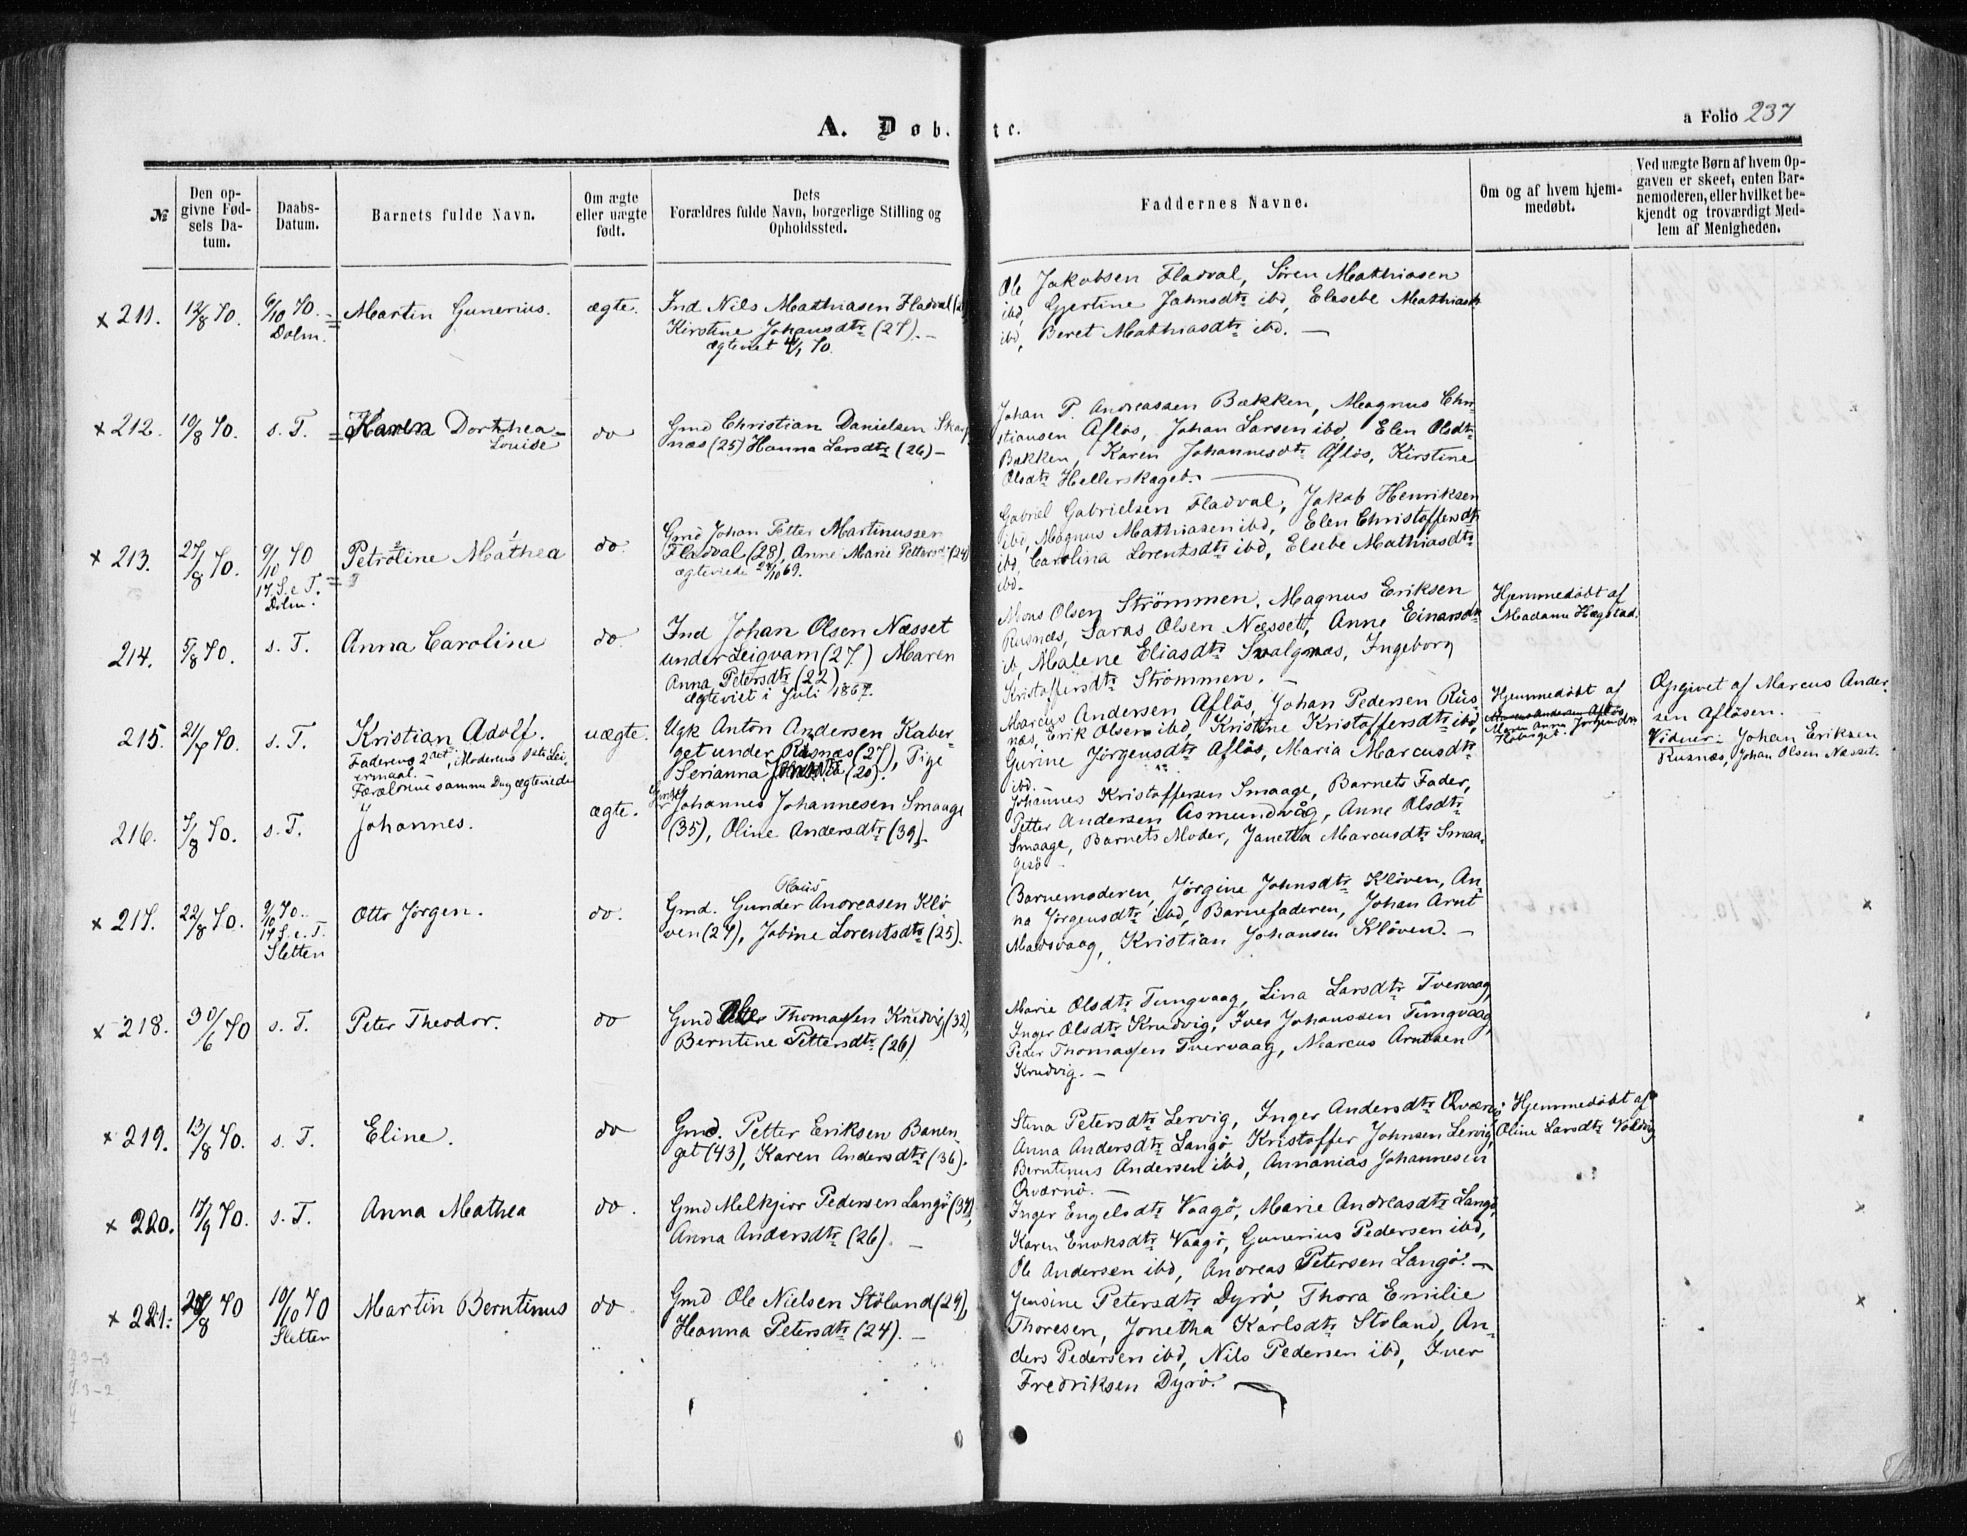 A. Døb. tc.
a Folio 237
№
Den op-
givne Fød-
sels Da-
tum.
Daabs-
Datum.
Barnets fulde Navn.
Om ægte
eller uægte
født.
Dets
Forældres fulde Navn, borgerlige Stilling og
Opholdssted.
Faddernes Navne.
Om og af hvem hjem-
medøbt.
Ved uægte Børn af hvem Op-
gaven er skeet, enten Bar-
nemoderen, eller hvilket be-
kjendt og troværdigt Med-
lem af Menigheden.
x 211. 12/8 70. 9/10 70.
Dolm.
Martin Gunerius.
ægte.
Ind Nils Mathiasen Fladval
Kirstine Johansdtr (27). –
Ole Jakobsen Fladval, Søren Mathiasen
ibd, Gjertine Jahnsdtr ibd, Elesebe Mathiasdtr
ibd, Beret Mathiasdtr ibd. –
x 212. 10/8 70. s. T.
Karen Dorthea
Louise
do
Gmd Christian Danielsen
næs (25) Hanna Larsdtr (26) –
Johan P. Andreassen Bakken, Magnus Chri-
stiansen Afløs, Johan Larsen ibd, Elen Olsdtr
Bakken, Karen Johannesdtr Afløs, Kirstine
Olsdtr Hellerskaget. –
x 213. 27/8 70. 9/10 70
17 S. e. T.
Dolm.
Petrotine Mathea
do.
Gmd Johan Petter Martinussen
Fladval (28), Anne Marie Pettersdtr (24)
ægteviede 29/10 69.
Gabriel Gabrielsen Fladval, Jakob Henriksen
ibd, Magnus Mathiasen ibd, Elen Christoffersdtr
ibd, Carolina Lorentsdtr ibd, Elsebe Mathiasdtr
ibd.
214. 5/8 70. s. T.
Anna Caroline
do
Ind Johan Olsen Næsset
under Leigvam (27) Maren
Anna Petersdtr (22)
ægteviet i Juli 1869.
Mons Olsen Strömmen, Magnus Eriksen
Rusnæs, Saras Olsen Næsset, Anne Einarsdtr
ib, Malene Eliasdtr Svalgnæs, Ingeborg
Kristoffersdtr Strömmen.
Hjemmedøbt af
Madam Hægstad.
215. 21/7 70. s. T.
Kristian Adolf.
Faderens 2det, Moderens 1ste Lei-
ermaal. –
Forældrene samme Dag ægteviede
uægte.
Ugk Anton Andersen Kaber-
get under Rusnæs (27), Pige
Serianna (20).
Marcus Andersen Afløs, Johan Pedersen Rus-
næs, Erik Olsen ibd, Kristine Kristoffersdtr ibd,
Gurine Jörgensdtr Afløs, Maria Marcusdtr
ibd. –
Hjemmedøbt af
Marcus Andersen Afløs
Maren Anna Jørgensdtr
Opgivet af Marcus Ander-
sen Afløsen.
Vidner: Johan Eriksen
Rusnæs, Johan Olsen Næsset.
216. 7/8 70. s. T.
Johannes.
ægte.
Johannes Johannesen Smaage
(35), Oline Andersdtr (39) –
Johannes Kristoffersen Smaage, Barnets Fader,
Petter Andersen Asmundvåg, Anne Olsdtr
Smaage, Barnets Moder, Janetta Marcusdtr Smaa-
gesö –
x 217. 22/8 70. 9/10 70.
17 S. e. T.
Sletten
Otto Jørgen.
do.
Gmd. Gunder Andreasen Klö-
ven (27), Jobine Lorentsdtr (25).
Barnemoderen, Jørgine Johnsdtr Kløven, An-
na Jørgensdtr ibd, Barnefaderen, Johan Arnt
Madsvaag, Kristian Johansen Kløven. –
x 218. 30/6 70 s. T.
Peter Theodor.
do
Gmd Ole Thomassen Krudvig (32),
Berntine Pettersdtr (26)
Marie Olsdtr Tungvaag, Lina Larsdtr Tvervaag,
Inger Olsdtr Krudvig, Iver Johanssen Tungvaag,
Peder Thomassen Tvervaag, Marcus Arntsen
Krudvig. –
x 219. 13/8 70. s. T.
Eline.
do
Gmd. Petter Eriksen Banen-
get (43), Karen Andersdtr (36).
Stina Petersdtr Lervig, Inger Andersdtr Qværnö
Anna Andersdtr Langø, Kristoffer Johnsen Lervig,
Berntinus Andersen ibd, Annanias Johannesen
Qværnö. –
Hjemmedøbt af
Oline Larsdtr
x 220. 17/9 70. s. T.
Anna Mathea
do.
Gmd Melkjior Pedersen Langö (37),
Anna Andersdtr (26). –
Inger Engelsdtr Vaagö, Marie Andreasdtr Langö,
Karen Enoksdtr Vaagø, Gunerius Pedersen ibd,
Ole Andersen ibd, Andreas Petersen Langö. –
x 221. 28/8 70 10/10 70
Sletten
Martin Berntinus
do
Gmd Ole Nielsen Stöland (29),
Hanna Petersdtr (24). –
Jensine Petersdtr Dyrö, Thora Emilie
Thoresen, Jonetha Karlsdtr Stoland, An-
ders Pedersen ibd, Nils Pedersen ibd, Iver
Fredriksen Dyrö. –